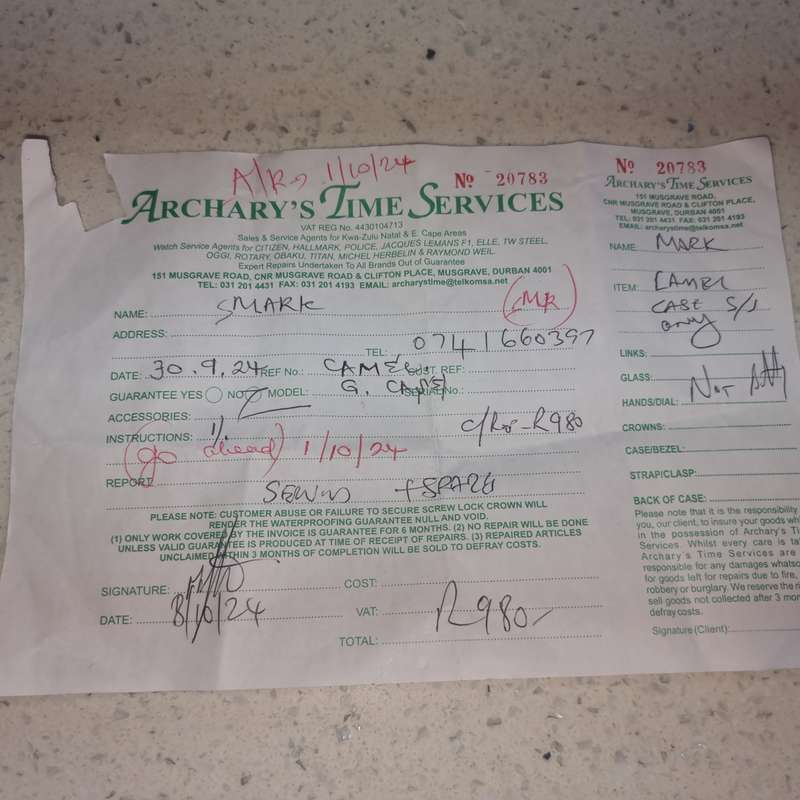 A/R 1/10/24
No 20783
ARCHARY'S TIME SERVICES
VAT REG No. 4430104713
Sales & Service Agents for Kwa-Zulu Natal & E. Cape Areas
Watch Service Agents for CITIZEN, HALLMARK, POLICE, JACQUES LEMANS F1, ELLE, TW STEEL,
OGGI, ROTARY, OBAKU, TITAN, MICHEL HERBELIN & RAYMOND WEIL.
Expert Repairs Undertaken To All Brands Out of Guarantee
151 MUSGRAVE ROAD, CNR MUSGRAVE ROAD & CLIFTON PLACE, MUSGRAVE, DURBAN 4001
TEL: 031 201 4431 FAX: 031 201 4193 EMAIL: archarystime@telkomsa.net
NAME: MARK MR
ADDRESS:
TEL: 0741660397
DATE: 30.9.24 REF No.: CAMEL CUST. REF:
GUARANTEE YES NO MODEL: G. SERIAL No.:
ACCESSORIES:
INSTRUCTIONS: R980
go ahead 1/10/24
REPORT
+SPARE
PLEASE NOTE: CUSTOMER ABUSE OR FAILURE TO SECURE SCREW LOCK CROWN WILL
RENDER THE WATERPROOFING GUARANTEE NULL AND VOID.
(1) ONLY WORK COVERED BY THE INVOICE IS GUARANTEE FOR 6 MONTHS. (2) NO REPAIR WILL BE DONE
UNLESS VALID GUARANTEE IS PRODUCED AT TIME OF RECEIPT OF REPAIRS. (3) REPAIRED ARTICLES
UNCLAIMED WITHIN 3 MONTHS OF COMPLETION WILL BE SOLD TO DEFRAY COSTS.
SIGNATURE: COST:
DATE: 8/10/24 VAT: R980
TOTAL:
No 20783
ARCHARY'S TIME SERVICES
151 MUSGRAVE ROAD,
CNR MUSGRAVE ROAD & CLIFTON PLACE,
MUSGRAVE, DURBAN 4001
TEL: 031 201 4431 FAX: 031 201 4193
EMAIL: archarystime@telkomsa.net
NAME: MARK
ITEM: CAMEL
CASE S/S
only
LINKS:
GLASS:
HANDS/DIAL: NOT
CROWNS:
CASE/BEZEL:
STRAP/CLASP:
BACK OF CASE:
Please note that it is the responsibility
you, our client, to insure your goods
in the possession of Archary's
Services. Whilst every care is
Archary's Time Services are
responsible for any damages
for goods left for repairs due to fire,
robbery or burglary. We reserve the
sell goods not collected after 3
defray costs.
Signature (Client):